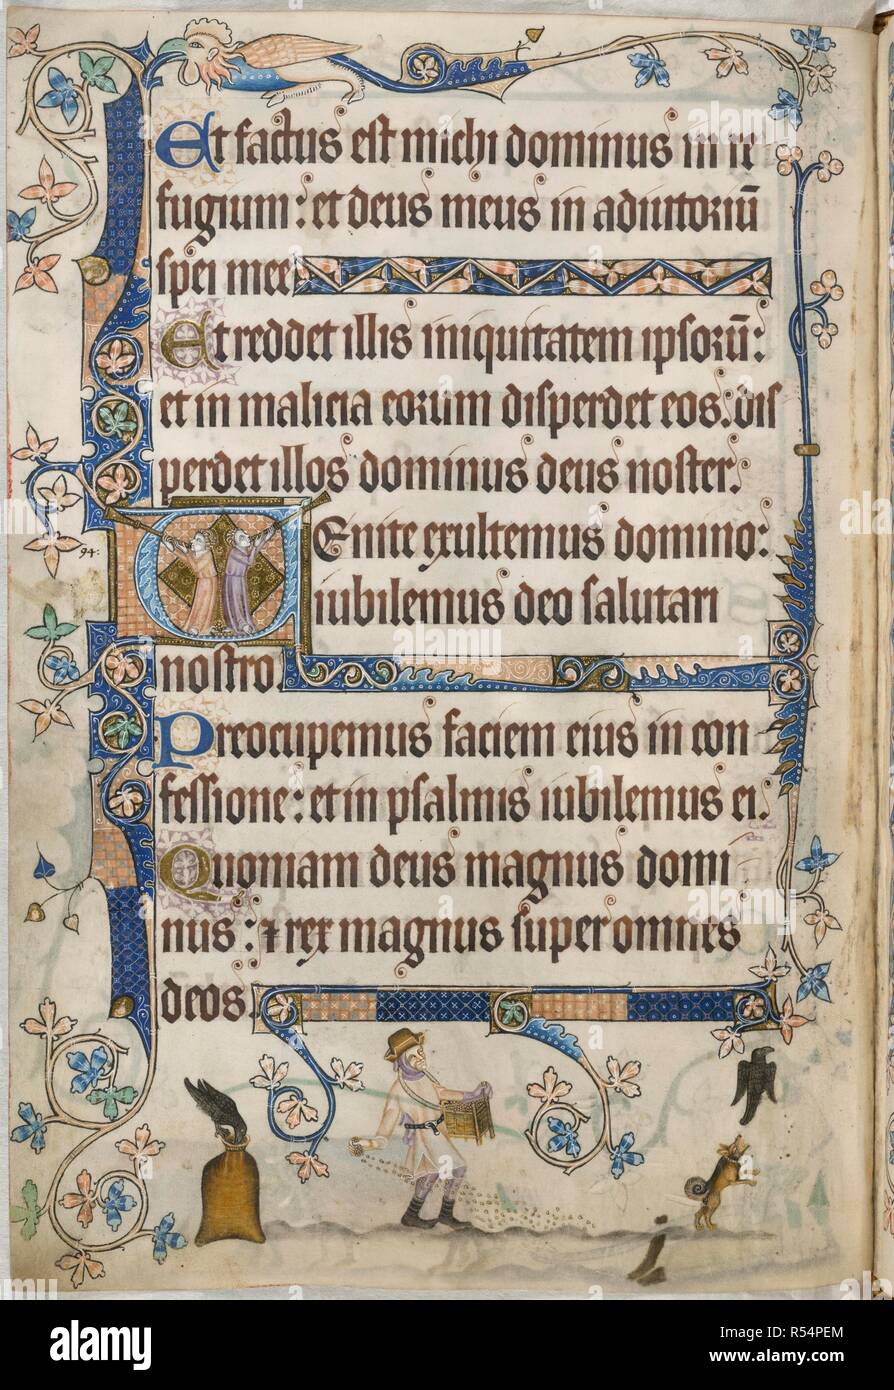 Et factus est michi dominus in re
fugium: et deus meus in adiutoriū
spei mee
Et reddet illis iniquitatem ipsorū:
et in malicia eorum disperdet eos: dis
perdet illos dominus deus noster.
94:
Venite exultemus domino:
iubilemus deo salutari
nostro.
Preocupemus faciem eius in con
fessione: et in psalmis iubilemus ei.
Quoniam deus magnus domi
nus: ⁊ rex magnus super omnes
deos.
alamy
Image ID: R54PEM
www.alamy.com